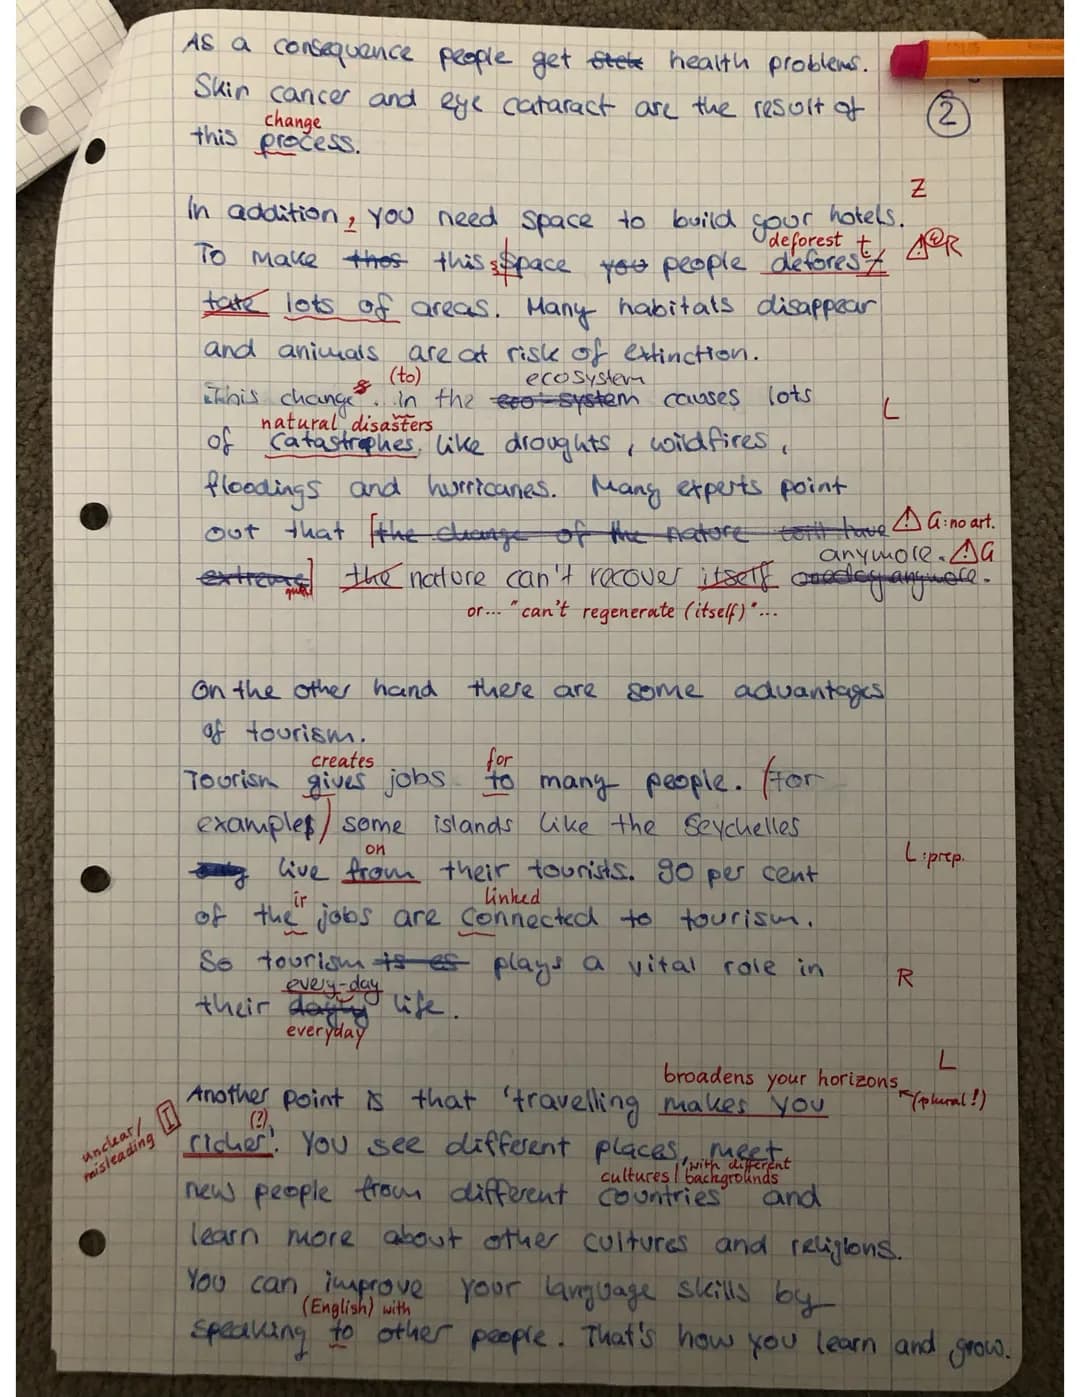 As a consequence people get health problems.
Skin cancer and eye cataract are the result of
②
change
this process.
Z
In addition, you need space to build your hotels.
deforest t
R
To make thos this space you people defores
tate lots of areas. Many habitats disappear
and animals are at risk of extinction.
(to) ecosystem
This change in the eco-system causes lots
L
natural disasters
of catastrophes, like droughts, wildfires,
floodings and hurricanes. Many experts point
out that [the change of the nature will have
G: no art.
anymore. G
extreme] the nature can't recover itself anymore.
or... "can't regenerate (itself)"...
On the other hand there are some advantages
of tourism.
creates for
Tourism gives jobs to many people. (For
example) some islands like the Seychelles
on
L: prep.
live from their tourists. 90 per cent
ir linked
of the jobs are connected to tourism.
So tourism is es plays a vital role in
R
every-day
their life.
everyday
L
broadens your horizons
(plural!)
Another point is that 'travelling makes you
unclear/
misleading
I
(?)
richer'. You see different places, meet
with different
cultures / backgrounds
new people from different countries and
learn more about other cultures and religions.
You can improve your language skills by
(English) with
speaking to other people. That's how you learn and grow.